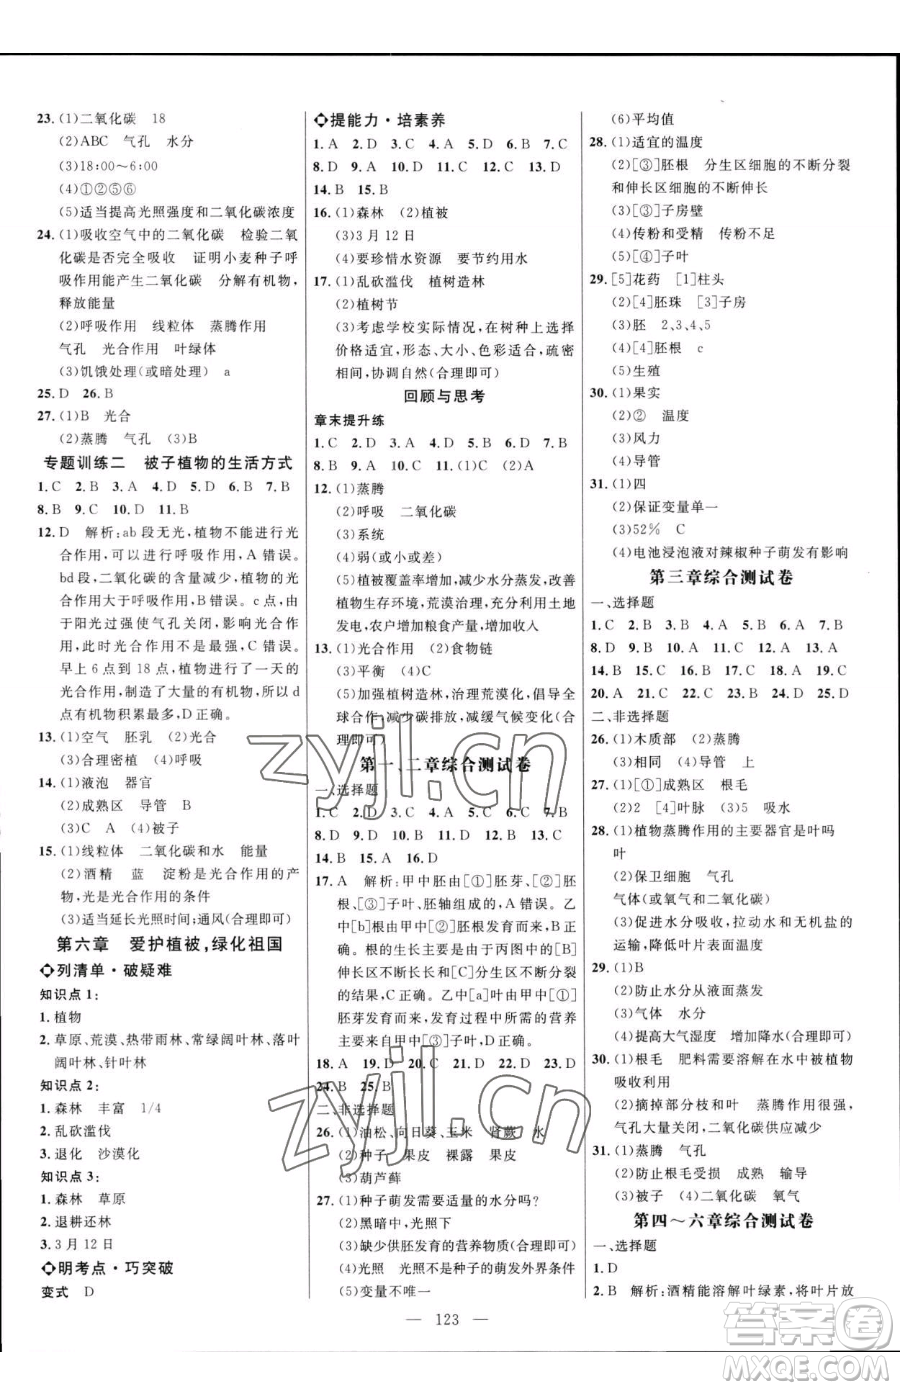 23. (1)二氧化碳　18
(2)ABC　气孔　水分
(3)18:00～6:00
(4)①②⑤⑥
(5)适当提高光照强度和二氧化碳浓度
24. (1)吸收空气中的二氧化碳　检验二氧
化碳是否完全吸收　证明小麦种子呼
吸作用能产生二氧化碳　分解有机物,
释放能量
(2)呼吸作用　线粒体　蒸腾作用
气孔　光合作用　叶绿体
(3)饥饿处理(或暗处理)　a
25. D　26. B
27. (1)B　光合
(2)蒸腾　气孔　(3)B
专题训练二　被子植物的生活方式
1. C　2. B　3. A　4. D　5. D　6. B　7. C
8. B　9. C　10. D　11. B
12. D　解析:ab段无光,植物不能进行光
合作用,可以进行呼吸作用,A错误。
bd段,二氧化碳的含量减少,植物的光
合作用大于呼吸作用,B错误。c点,由
于阳光过强使气孔关闭,影响光合作
用,此时光合作用不是最强,C错误。
早上6点到18点,植物一天的光合作
用,制造了大量的有机物,所以d
点有机物积累最多,D正确。
13. (1)空气　胚乳　(2)光合
(3)合理密植　(4)呼吸
14. (1)液泡　器官
(2)成熟区　导管　B
(3)C　A　(4)被子
15. (1)线粒体　二氧化碳和水　能量
(2)酒精　蓝　淀粉是光合作用的产
物,光是光合作用的条件
(3)适当延长光照时间;通风(合理即可)
第六章　爱护植被,绿化祖国
列清单·破疑难
知识点1:
1. 植物
2. 草原、荒漠、热带雨林、常绿阔叶林、落叶
阔叶林、针叶林
知识点2:
1. 森林　丰富　1/4
2. 乱砍滥伐
3. 退化　沙漠化
知识点3:
1. 森林　草原
2. 退耕还林
3. 3月12日
明考点·巧突破
变式　D
提能力·培素养
1. A　2. D　3. C　4. A　5. D　6. B　7. C
8. D　9. A　10. D　11. C　12. C　13. D
14. B　15. B
16. (1)森林　(2)植被
(3)3月12日
(4)要珍惜水资源　要节约用水
17. (1)乱砍滥伐　植树造林
(2)植树节
(3)考虑学校实际情况,在树种上选择
价格适宜,形态、大小、色彩适合,疏密
相间,协调自然(合理即可)
回顾与思考
章末提升练
1. C　2. D　3. D　4. B　5. D　6. B　7. B
8. B　9. A　10. A　11. (1)C　(2)A
12. (1)蒸腾
(2)呼吸　二氧化碳
(3)系统
(4)弱(或小或差)
(5)植被覆盖率增高,减少水分蒸发,改善
植物生存环境,荒漠治理,充分利用土地
发电,农户增加粮食产量,增加收入
13. (1)光合作用　(2)食物链
(3)平衡　(4)C
(5)加强植树造林,治理荒漠化,倡导全
球合作,减少碳排放,减缓气候变化(合
理即可)
第一、二章综合测试卷
一、选择题
1. C　2. B　3. D　4. B　5. C　6. D　7. B
8. D　9. D　10. D　11. D　12. C　13. B
14. B　15. A　16. D
17. A　解析:甲中胚由[①]胚芽、[②]胚
根、[③]子叶、胚轴组成的,A错误。乙
中[b]根由甲中[②]胚根发育而来,B
正确。根的生长主要由于丙图中的[B]
伸长区的生长和[C]分生区不断分裂
的结果,C正确。乙中[a]叶由甲中[①]
胚芽发育而来,发育过程中所需的营养
主要来自甲中[③]子叶,D正确。
18. A　19. D　20. D　21. D　22. D　23. D
24. B　25. B
二、非选择题
26. (1)油松、向日葵、玉米　肾蕨　水
(2)种子　果皮　裸露　果皮
(3)葫芦藓
27. (1)种子萌发需要适量的水分吗?
(2)黑暗中,光照下
(3)缺少供胚发育的营养物质(合理即可)
(4)光照　光照不是种子的萌发外界条件
(5)变量不唯一
(6)平均值
28. (1)适宜的温度
(2)[③]胚根　分生区细胞的不断分裂
和伸长区细胞的不断伸长
(3)[③]子房壁
(4)传粉和受精　传粉不足
(5)[④]子叶
29. [5]花药　[1]柱头
(2)[4]胚珠　[3]子房
(3)胚　2、3、4、5
(4)[4]胚根　c
(5)生殖
30. (1)果实
(2)②　温度
(3)风力
(4)导管
31. (1)四
(2)保证变量单一
(3)52%　C
(4)电池浸泡液对辣椒种子萌发有影响
第三章综合测试卷
一、选择题
1. C　2. B　3. B　4. A　5. D　6. A　7. B
8. D　9. B　10. D　11. A　12. A　13. A
14. B　15. B　16. C　17. A　18. D　19. D
20. A　21. C　22. C　23. D　24. C　25. D
二、非选择题
26. (1)木质部　(2)蒸腾
(3)相同　(4)导管
27. (1)[①]成熟区　根毛
(2)2　[4]叶脉　(3)5　吸水
28. (1)植物蒸腾作用的主要器官是叶吗
叶
(2)保卫细胞　气孔
气体(或氧气和二氧化碳)
(3)促进水分吸收,拉动水和无机盐的
运输,降低叶片表面的温度
29. (1)B
(2)防止水分从液面蒸发
(3)气体　水
(4)提高大气湿度　增加降水(合理即可)
30. (1)根毛　肥料需要溶解在水中被植物
吸收利用
(2)摘掉部分枝和叶　蒸腾作用过强,
气孔大量关闭,二氧化碳供应减少
31. (1)蒸腾　气孔
(2)防止根毛受损　成熟　输导
(3)被子　(4)二氧化碳　氧气
第四～六章综合测试卷
一、选择题
1. D
2. B　解析:酒精能溶解叶绿素,将叶片放
— 123 —
zyjl.cn
zyjl.cn
答案圈
MXQE.COM